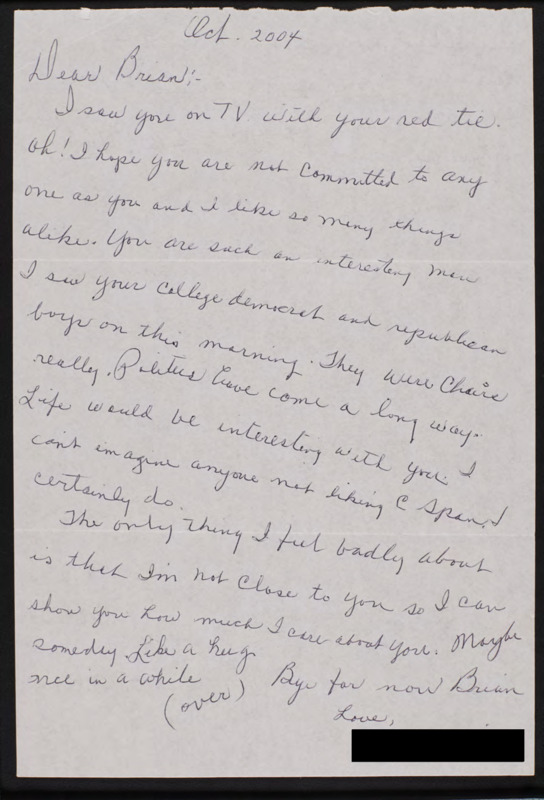 Oct. 2004
Dear Brian:-
I saw you on TV with your red tie.
Oh! I hope you are not committed to any
one as you and I like so many things
alike. You are such an interesting man
I saw your college democrat and republican
boys on this morning. They were Chairs
really. Politics have come a long way.
Life would be interesting with you. I
can't imagine anyone not liking C Span. I
certainly do.
The only thing I feel badly about
is that I'm not close to you so I can
show you how much I care about you. Maybe
someday. Like a hug
nce in a while
Bye for now Brian
(over)
Love,